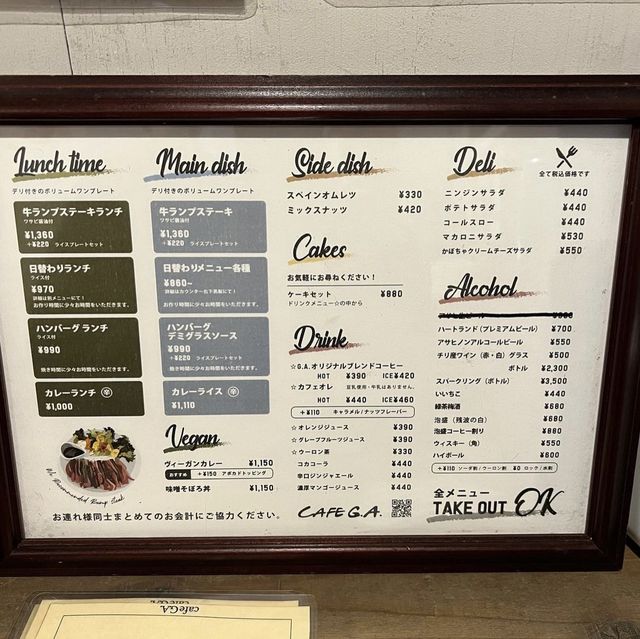 Lunch time
デリ付きのボリュームワンプレート
牛ランプステーキランチ
ワサビ醤油付
¥1,360
+¥220 ライスプレートセット
日替わりランチ
ライス付
¥970
詳細は別メニューにて！
お作り時間に少々お時間をいただきます。
ハンバーグランチ
ライス付
¥990
焼き時間に少々お時間をいただきます。
カレーランチ 辛
¥1,000
Main dish
デリ付きのボリュームワンプレート
牛ランプステーキ
ワサビ醤油付
¥1,360
+¥220 ライスプレートセット
日替わりメニュー各種
¥860~
詳細はカウンター右下黒板にて！
お作り時間に少々お時間をいただきます。
ハンバーグ
デミグラスソース
¥990
+¥220 ライスプレートセット
焼き時間に少々お時間をいただきます。
カレーライス 辛
¥1,110
Vegan
ヴィーガンカレー ¥1,150
おすすめ +¥150 アボカドトッピング
味噌そぼろ丼 ¥1,150
We Recommended Rump Steak
お連れ様同士まとめてのお会計にご協力ください。
Side dish
スペインオムレツ ¥330
ミックスナッツ ¥420
Cakes
お気軽にお尋ねください！
ケーキセット ¥880
ドリンクメニュー☆の中から
Drink
☆G.A.オリジナルブレンドコーヒー
HOT ¥390 ICE¥420
☆カフェオレ 豆乳使用・牛乳はありません。
HOT ¥440 ICE¥460
+¥110 キャラメル/ナッツフレーバー
☆オレンジジュース ¥390
☆グレープフルーツジュース ¥390
☆ウーロン茶 ¥330
コカコーラ ¥440
辛口ジンジャエール ¥440
濃厚マンゴージュース ¥440
CAFE G.A.
Deli
全て税込価格です
ニンジンサラダ ¥440
ポテトサラダ ¥440
コールスロー ¥440
マカロニサラダ ¥530
かぼちゃクリームチーズサラダ ¥550
Alcohol
ハートランド (プレミアムビール) ¥700
アサヒノンアルコールビール ¥550
チリ産ワイン (赤・白) グラス ¥500
ボトル ¥2,300
スパークリング (ボトル) ¥3,500
いいちこ ¥440
緑茶梅酒 ¥680
泡盛 (残波の白) ¥680
泡盛コーヒー割り ¥880
ウィスキー (角) ¥550
ハイボール ¥600
+¥110 ソーダ割/ウーロン割 ¥0 ロック/水割
全メニュー
TAKE OUT OK
cafeGA